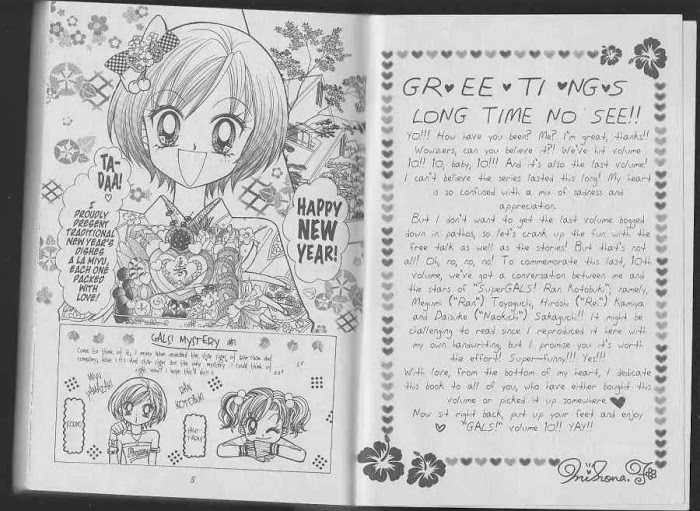 TA-
DAA!
I
PROUDLY
PRESENT
TRADITIONAL
NEW YEAR'S
DISHES
A LA MIYU,
EACH ONE
PACKED
WITH
LOVE!
HAPPY
NEW
YEAR!
寿
GALS! MYSTERY #1
Come to think of it, I never have revealed the star signs of
company, have I? star signs are the only mystery I could think of
right now! I hope
MIYU
RAN
KOTOBUKI
5
GR♥EE♥TI♥NG♥S
LONG TIME NO SEE!!
YO!!! How have you been? Me? I'm great, thanks!!
Wowzers, can you believe it?! We've hit volume
10!! 10, baby, 10!!! And it's also the last volume!
I can't believe the series lasted this long! My heart
is so confused with a mix of sadness and
appreciation.
But I don't want to get the last volume bogged
down in pathos, so let's crank up the fun with the
free talk as well as the stories! But that's not
all! Oh, no, no, no! To commemorate this last, 10th
volume, we've got a conversation between me and
the stars of "SuperGALS! Ran Kotobuki", namely,
Megumi ("Ran") Toyoguchi, Hiroshi ("Rei") Kamiya
and Daisuke ("Naoki") Sakaguchi!! It might be
challenging to read since I reproduced it here with
my own handwriting, but I promise you it's worth
the effort! Super-funny!!! Yes!!!
With love, from the bottom of my heart, I dedicate
this book to all of you, who have either bought this
volume or picked it up somewhere ♥
Now sit right back, put up your feet and enjoy
♥ "GALS!" volume 10!! YAY!!
Mihona. F